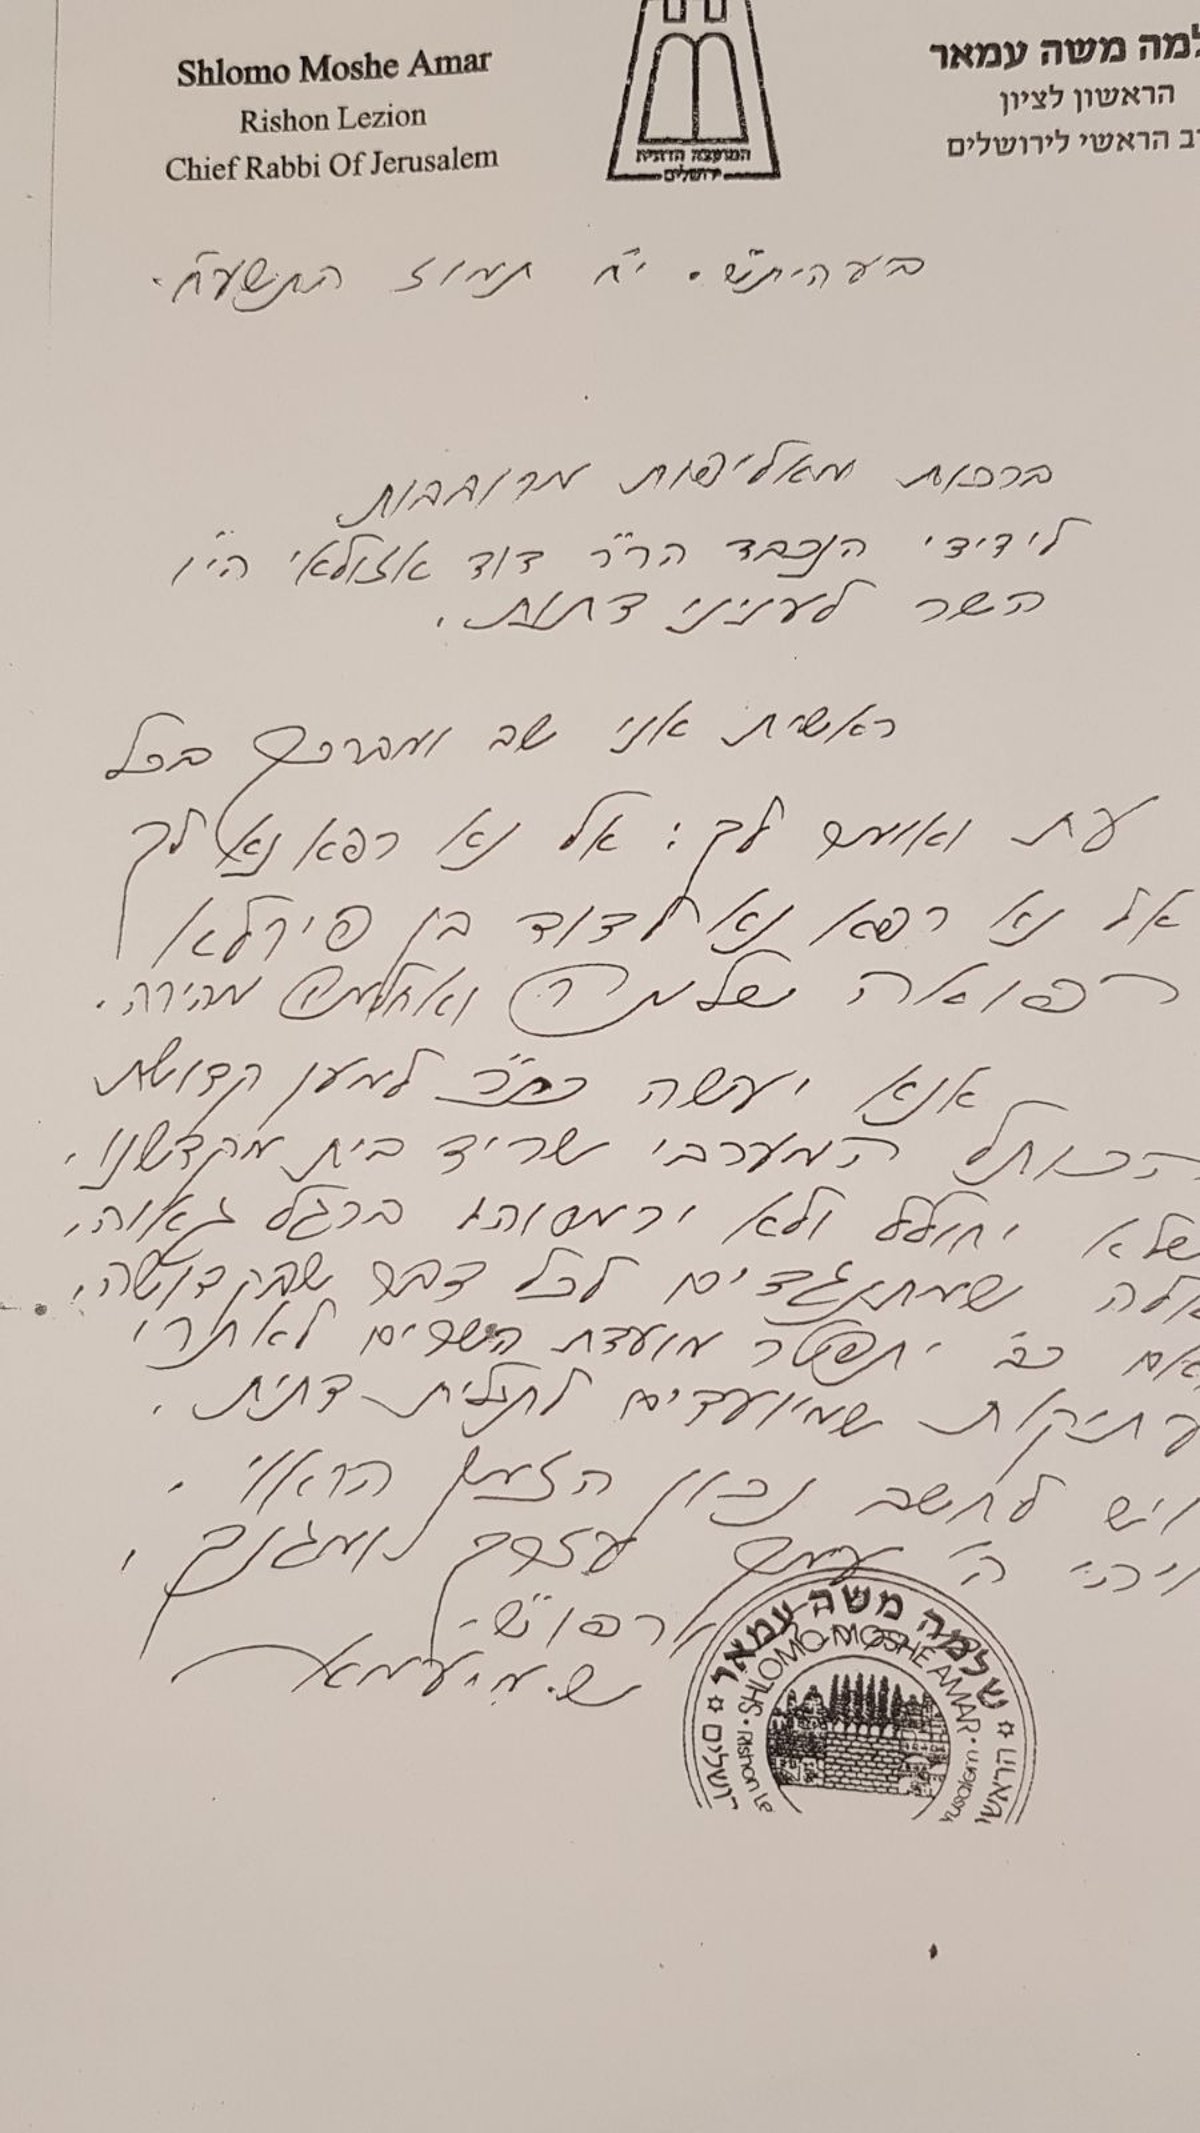 Shlomo Moshe Amar
Rishon Lezion
Chief Rabbi Of Jerusalem
המועצה הדתית
ירושלים
למה משה עמאר
הראשון לציון
רב הראשי לירושלים
בעהית"ש. י"ח תמוז התשע"ח.
ברכות מאליפות מרובבות
לידידי הנכבד הר"ר דוד אזולאי הי"ו
השר לעניני דתות.
ראשית אני שב ומברכך בכל
עת ואומר לך: אל נא רפא נא לך
אל נא רפא נא לדוד בן פירלא
רפואה שלמה ואחלמה מהירה.
אנא יעשה כת"ר למען קדושת
הכותל המערבי שריד בית מקדשנו,
שלא יחולל ולא ירמסוהו ברגל גאוה,
אלה שמתנגדים לכל דבר שבקדושה,
אם כב' יתפטר מועדת השרים לאתרי
עתיקות שמיועדים לתפלית דתית.
ויש לחשב נכון הזמן הראוי.
ויהי ה' עמך עזרך ומגנך,
ש. מ. עמאר
שלמה משה עמאר
SHLOMO MOSHE AMAR
Rishon Le
ירושלים
הראשו
rusalem